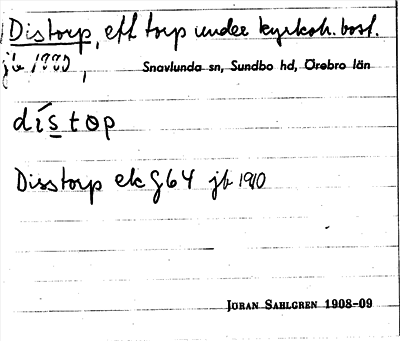 Distorp, ett torp under kyrkoh. bost.
jb 1880, Snavlunda sn, Sundbo hd, Örebro län
dístop
Disstorp ek G64 jb 1910
JÖRAN SAHLGREN 1908-09